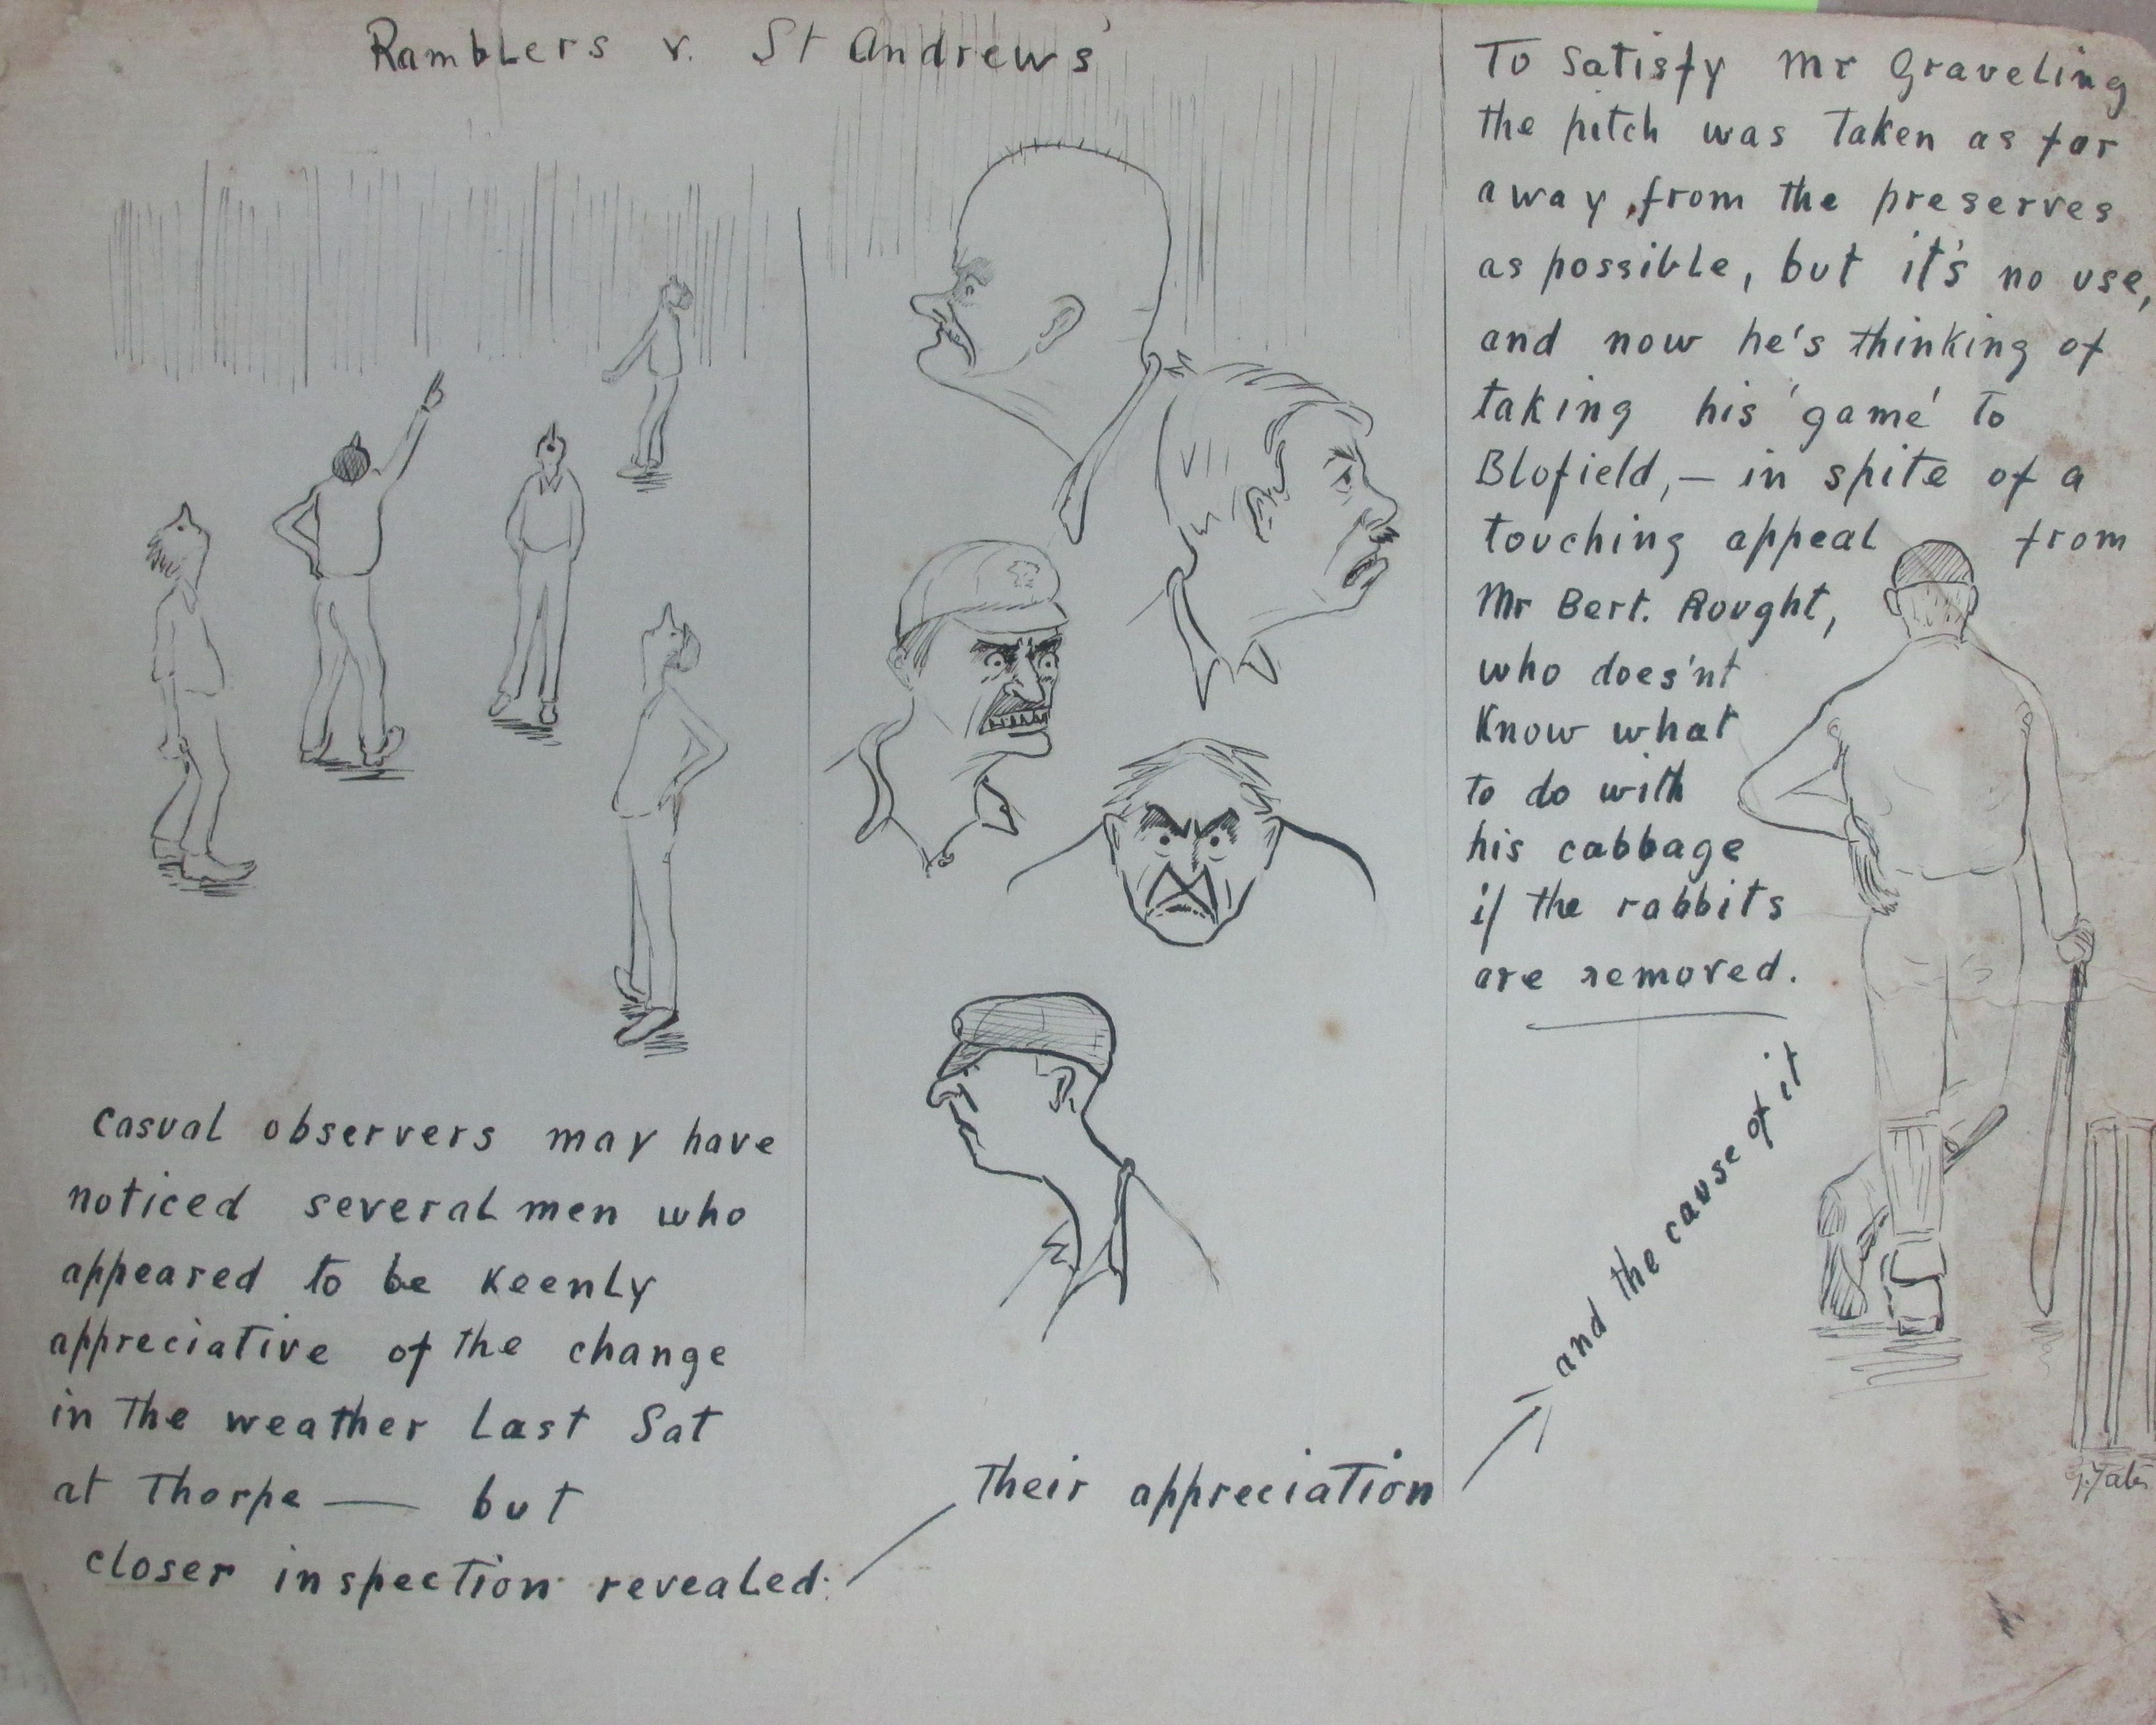 Ramblers v. St Andrews'
casual observers may have
noticed several men who
appeared to be keenly
appreciative of the change
in the weather last Sat
at Thorpe — but
closer inspection revealed:
Their appreciation
and the cause of it
To satisfy Mr Graveling
the pitch was taken as far
away from the preserves
as possible, but it's no use,
and now he's thinking of
taking his 'game' to
Blofield, — in spite of a
touching appeal from
Mr Bert. Rought,
who does'nt
know what
to do with
his cabbage
if the rabbits
are removed.